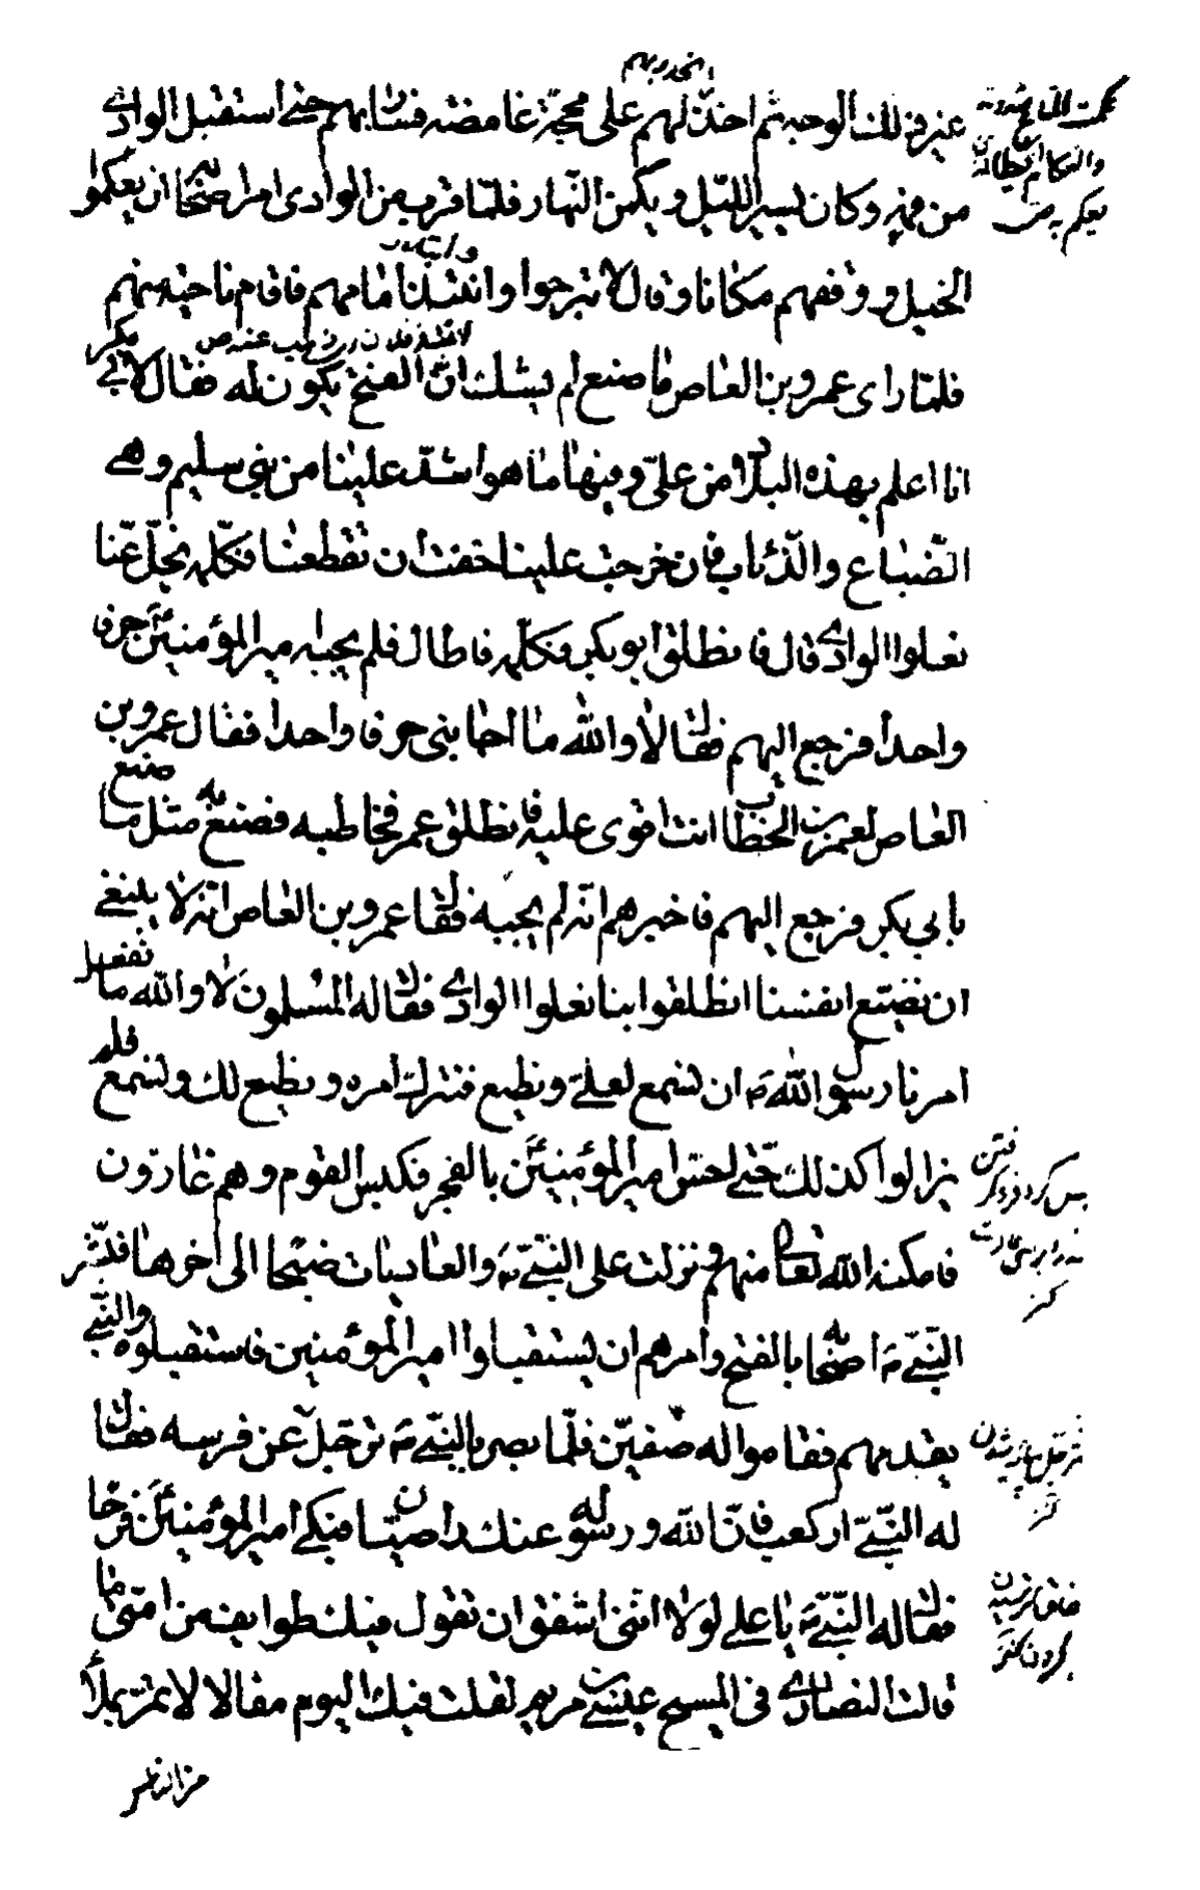 انحدر بهم
غير ذلك الوجه ثم اخذ لهم على محجّة غامضة فسار بهم حتى استقبل الوادي
من فمه وكان يسير الليل ويكمن النهار فلمّا قرب من الوادى امر اصحابه ان يعكموا
الخيل ووقفهم مكانا وقال لا تبرحوا وانتبذ امامهم فاقام ناحية منهم
فلمّا راى عمرو بن العاص ما صنع لم يشك انّ الفتح يكون له فقال لابي بكر
انا اعلم بهذه البلاد من عليّ وفيها ما هو اشدّ علينا من بني سليم وهي
الضّباع والذّئاب فان خرجت علينا خفت ان تقطعنا فكلّمه يخلّ عنّا
نعلوا الوادي قال فانطلق ابو بكر فكلّمه فاطال فلم يجبه امير المؤمنينَ حرفا
واحدا فرجع اليهم فقال لا والله ما اجابني حرفا واحدا فقال عمرو بن
العاص لعمر بن الخطّاب انت اقوى عليه فانطلق عمر فخاطبه فصنع به مثل ما صنع
بابي بكر فرجع اليهم فاخبرهم انّه لم يجبه فقال عمرو بن العاص انّه لا ينبغي
ان نضيّع انفسنا انطلقوا بنا نعلوا الوادي فقال له المسلمون لا والله ما نفعل
امرنا رسول الله ص ان نسمع لعليّ ونطيع فنترك امره ونطيع لك ونسمع فلم
يزالوا كذلك حتّى احسّ امير المؤمنينَ بالفجر فكبس القوم وهم غارّون
فامكنه الله تعالى منهم ونزلت على النّبيّ ص والعاديات ضبحا الى اخرها فبشّر
النّبيّ ص اصحابه بالفتح وامرهم ان يستقبلوا امير المؤمنين فاستقبلوه والنّبيّ
يقدمهم فقاموا له صفّين فلمّا بصر بالنّبيّ ص ترجّل عن فرسه فقال
له النّبيّ اركب فانّ الله ورسوله عنك راضيان فبكى امير المؤمنينَ فرحا
فقال له النّبيّ ص يا علي لولا انّني اشفق ان تقول فيك طوايف من امّتي ما
قالت النصارى في المسيح عيسى بن مريم لقلت فيك اليوم مقالا لا تمرّ بملأ
من الناس